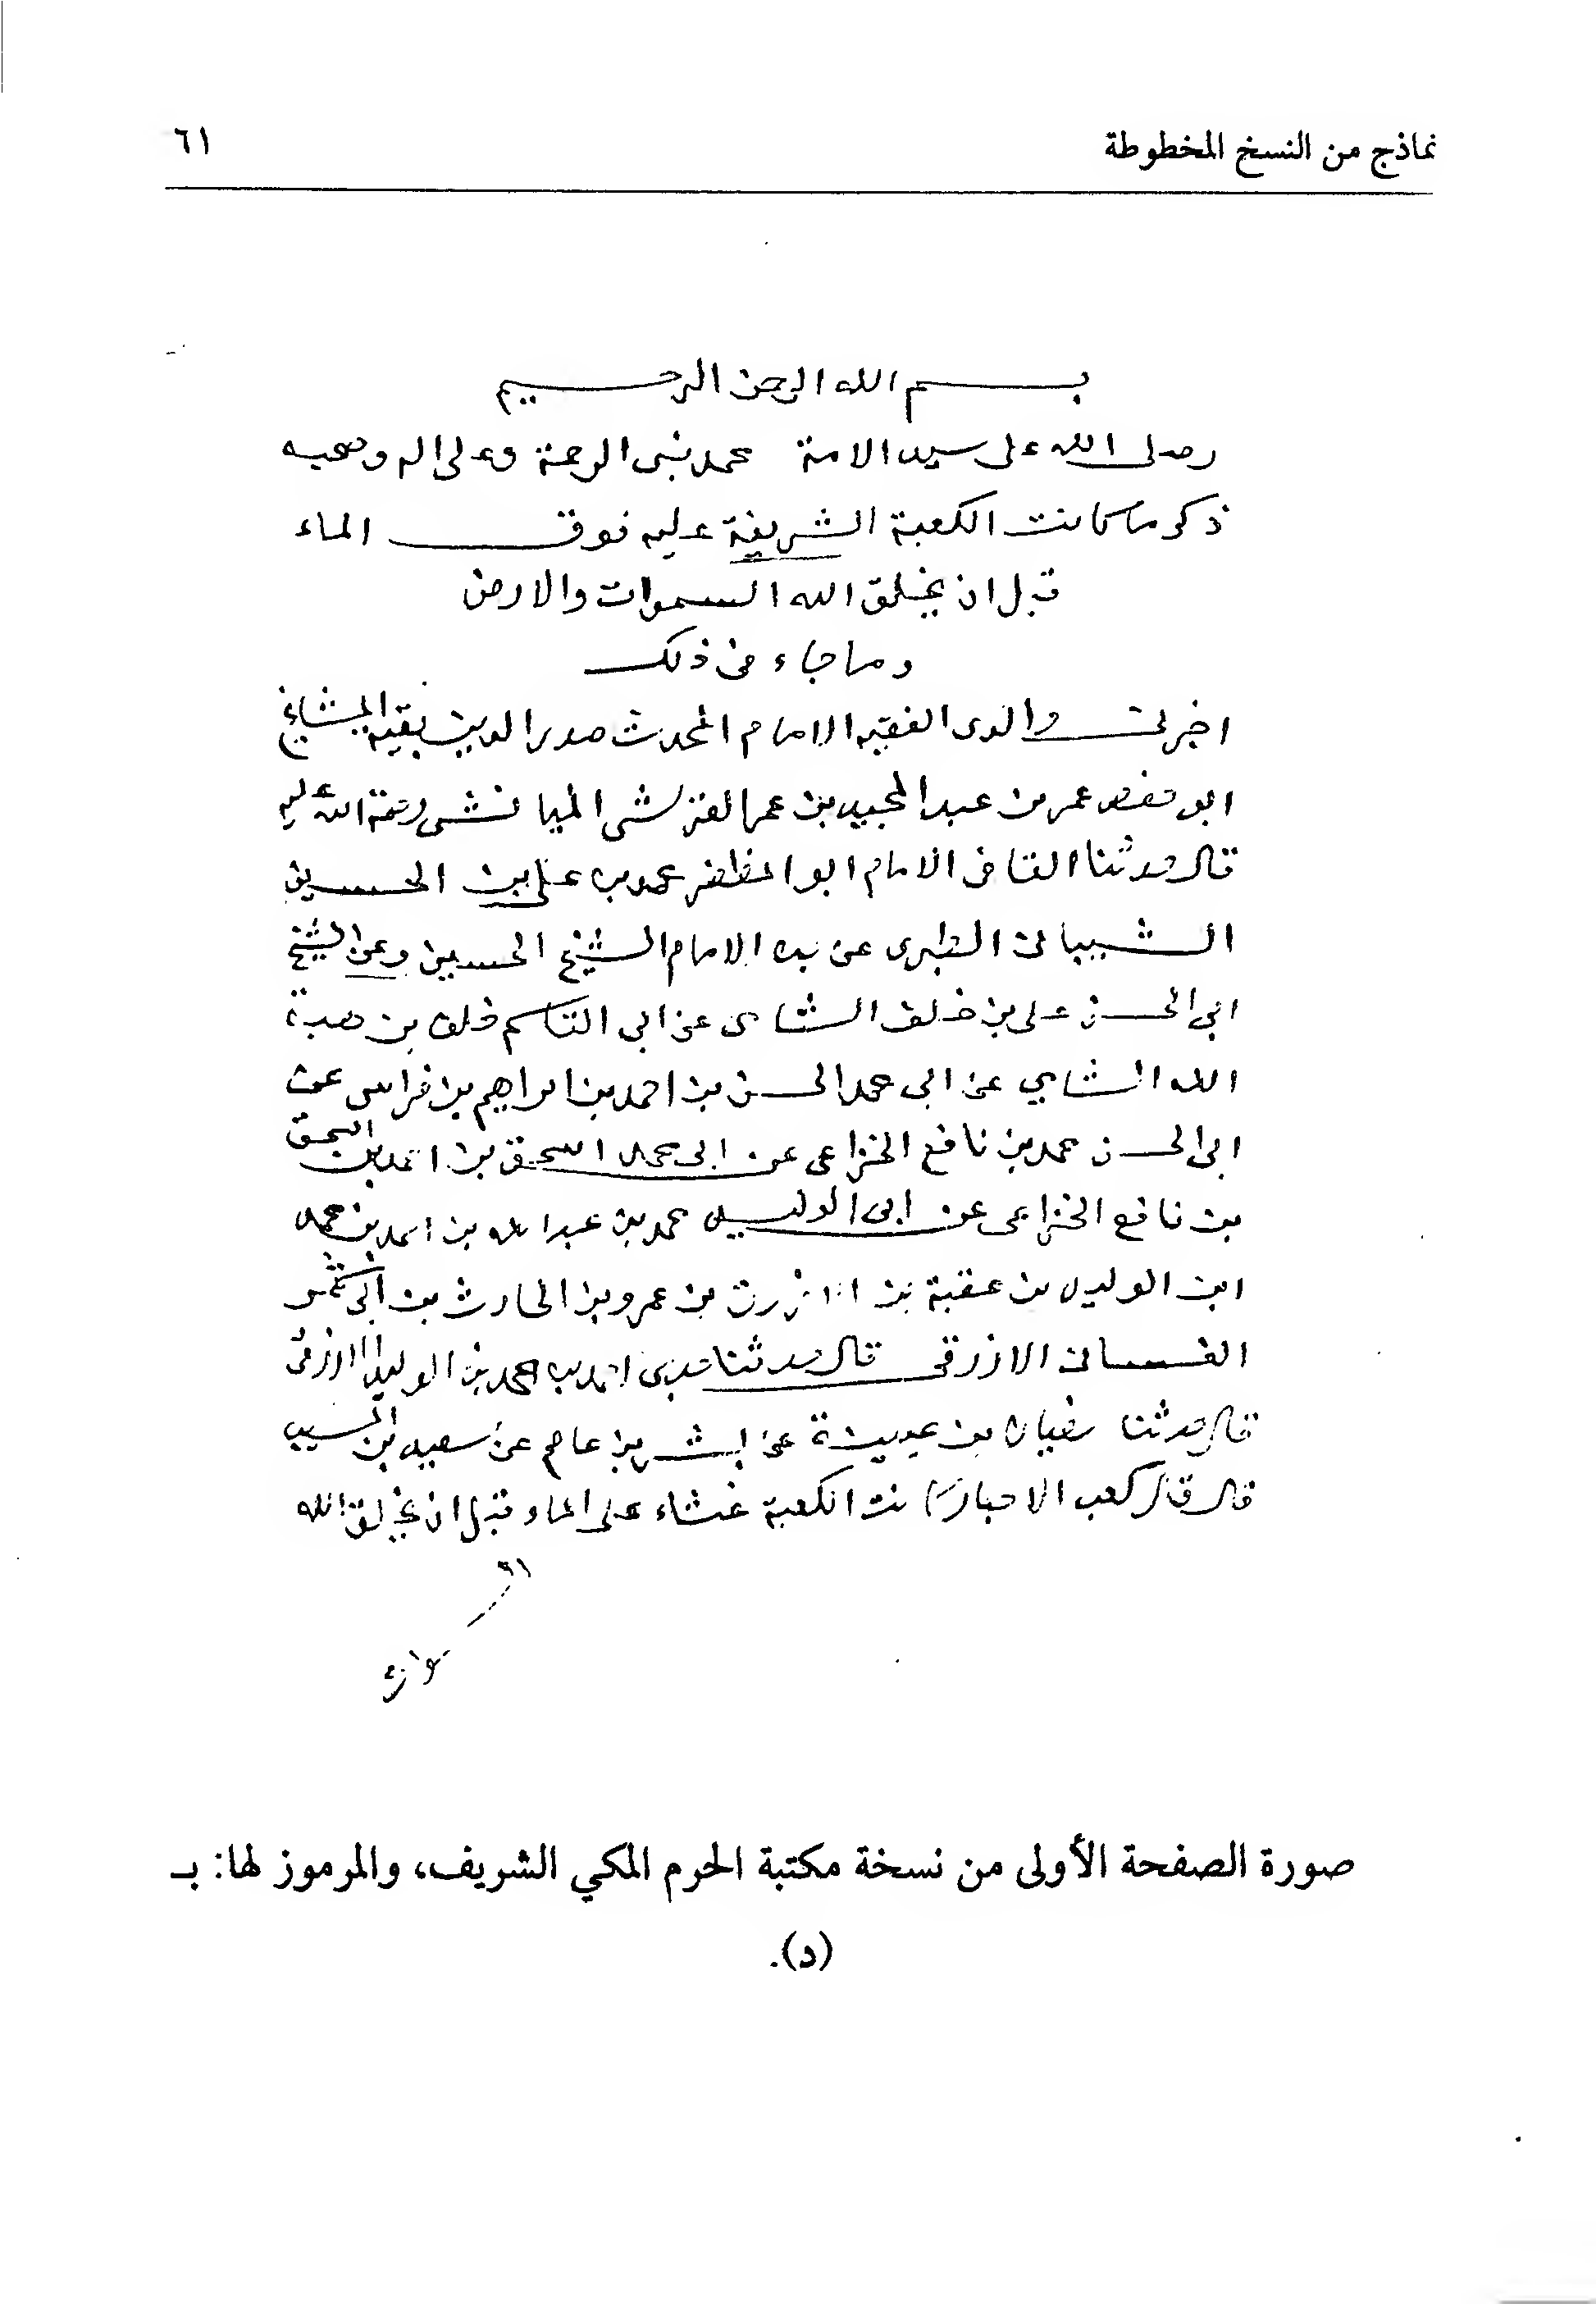 نماذج من النسخ المخطوطة
٦١
بسم الله الرحمن الرحيم
وصلى الله على سيد الامة محمد نبى الرحمة وعلى اله وصحبه
ذكر ما كانت الكعبة الشريفة عليه فوق الماء
قبل ان يخلق الله السموات والارض
وما جاء فى ذلك
اخبرنى والدى الفقيه الامام المحدث صدر الدين بقية المشايخ
ابو حفص عمر بن عبد المجيد بن عمر القرشى الميانشى رحمة الله عليه
قال حدثنا القاضى الامام ابو المظفر محمد بن على بن الحسين
الشيبانى الطبرى عن جده الامام الشيخ الحسين وعن الشيخ
ابى الحسن على بن خلف الشامى عن ابى القاسم خلف بن هبة
الله الشامي عن ابى محمد الحسن بن احمد بن ابراهيم بن فراس عن
ابى الحسن محمد بن نافع الخزاعى عن ابى محمد اسحق بن احمد بن اسحق
بن نافع الخزاعى عن ابى الوليد محمد بن عبد الله بن احمد بن محمد
ابن الوليد بن عقبة بن الازرق بن عمرو بن الحارث بن ابى شمر
الغسانى الازرقى قال حدثنا جدى احمد بن محمد بن الوليد الازرقى
قال حدثنا سفيان بن عيينة عن بشر بن عاصم عن سعيد بن المسيب
قال قال كعب الاحبار كانت الكعبة غثاء على الماء قبل ان يخلق الله
صورة الصفحة الأولى من نسخة مكتبة الحرم المكي الشريف، والمرموز لها: بـ
(د).